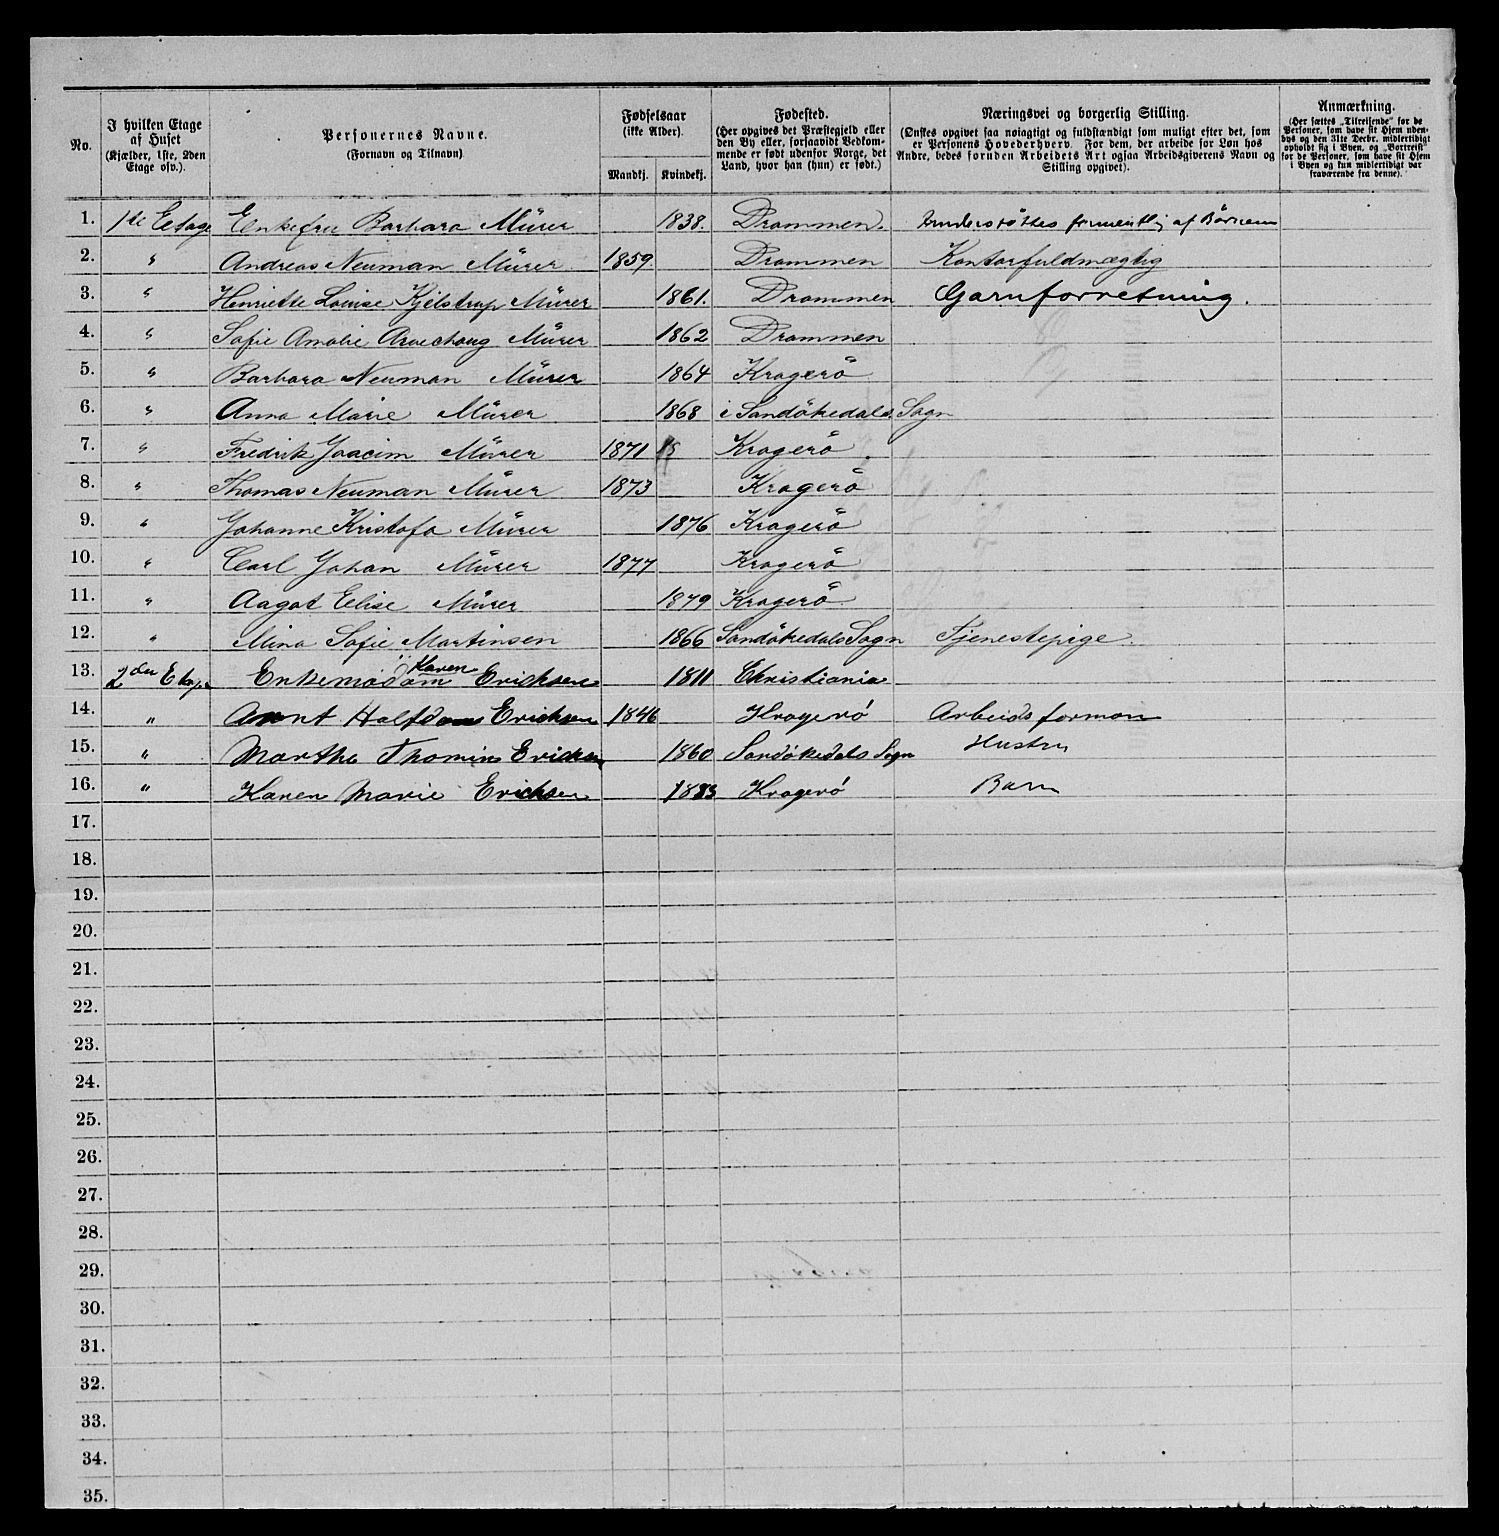 No. | I hvilken Etage af Huset (Kjælder, 1ste, 2den Etage osv.). | Personernes Navne. (Fornavn og Tilnavn) | Fødselsaar (ikke Alder). Mandkj. | Kvindekj. | Fødested. (Her opgives det Præstegjeld eller den By eller, forsaavidt Vedkommende er født udenfor Norge, det Land, hvor han (hun) er født.) | Næringsvei og borgerlig Stilling. (Ønskes opgivet saa nøiagtigt og fuldstændigt som muligt efter det, som er Personens Hovederhverv. For dem, der arbeide for Løn hos Andre, bedes foruden Arbeidets Art ogsaa Arbeidsgiverens Navn og Stilling opgivet). | Anmærkning. (Her sættes „Tilreisende" for de Personer, som have sit Hjem udenbys og den 31te Decbr. midlertidigt opholdt sig i Byen, og „Bortreist" for de Personer, som have sit Hjem i Byen og kun midlertidigt var fraværende fra denne).
1. 1ste Eetage Enkefru Barbara Mürer 1838. Drammen. Understöttes formentlig af Börnene
2. " Andreas Neuman Mürer 1859 Drammen Kontorfuldmægtig
3. " Henriette Louise Kjelstrup Mürer 1861. Drammen Garnforretning.
4. " Sofie Amalie Mürer 1862 Drammen
5. " Barbara Neuman Mürer 1864 Kragerö
6. " Anna Marie Mürer 1868 i Sandökedals Sogn
7. " Fredrik Joacim Mürer 1871 Kragerö.
8. " Thomas Neuman Mürer 1873 Kragerö
9. " Johanne Kristofa Mürer 1876 Kragerö
10. " Carl Johan Mürer 1877 Kragerö
11. " Aagot Elise Mürer 1879 Kragerö
12. " Mina Sofie Martinsen 1866 Sandökedals Sogn Tjenestepige.
13. 2den Etage Enkemadam Karen Erichsen 1811 Christiania
14. " Arnt Halfdan Erichsen 1846 Kragerö Arbeidsforman
15. " Marthe Thomine Erichsen 1860 Sandökedals Sogn Hustru
16. " Karen Marie Erichsen 1883 Kragerö Barn
17.
18.
19.
20.
21.
22.
23.
24.
25.
26.
27.
28.
29.
30.
31.
32.
33.
34.
35.